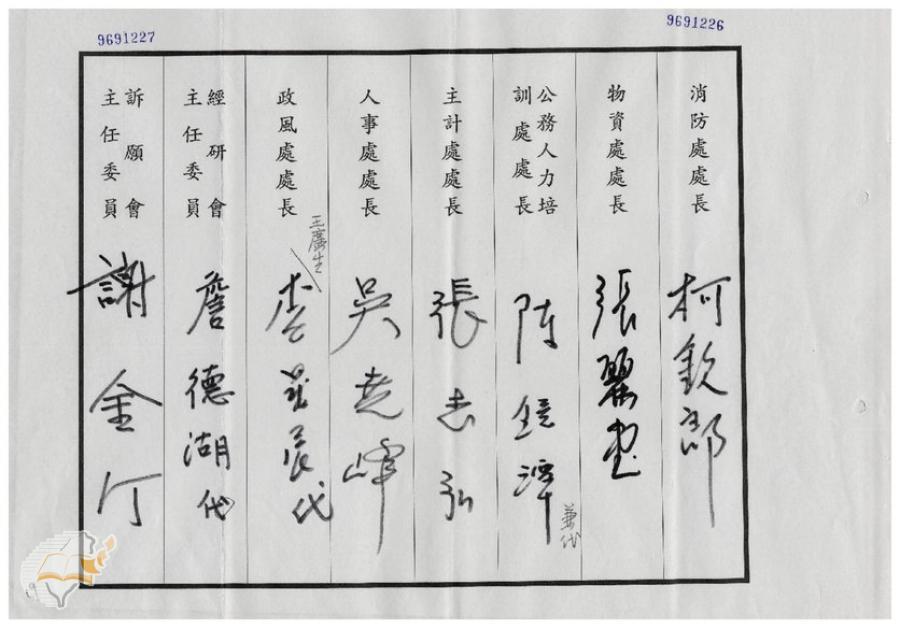 9691226
9691227
消防處處長
柯欽郎
物資處處長
張麗堂
公務人力培
訓處處長
陳鏡潭
兼代
主計處處長
張志弘
人事處處長
吳堯峰
政風處處長
代
經研會
主任委員
詹德湖代
訴願會
主任委員
謝金汀